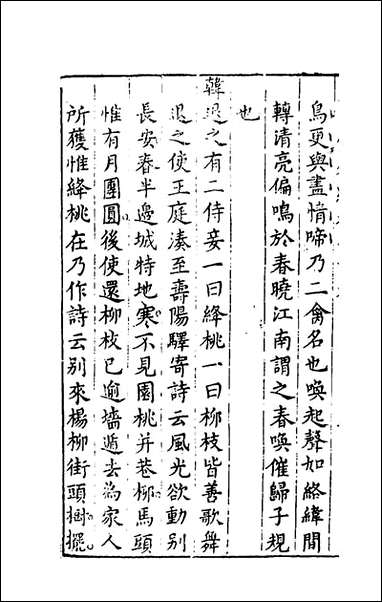 鳥更與盡情啼乃二禽名也喚起聲如絡緯間
轉清亮偏鳴於春曉江南謂之春喚催歸子規
也
韓退之有二侍妾一曰絳桃一曰柳枝皆善歌舞
退之使王庭湊至壽陽驛寄詩云風光欲動別
長安春半邊城特地寒不見園桃并巷柳馬頭
惟有月團圓後使還柳枝已逾墻遁去為家人
所獲惟絳桃在乃作詩云別來楊柳街頭樹擺